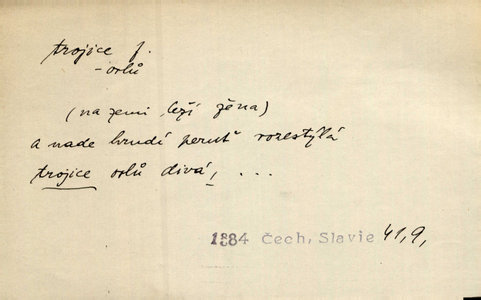 trojice f.
- orlů
(na zemi leží žena)
a nade hrudí peruť rozestýlá
trojice orlů divá, ...
1884 Čech, Slavie 41,9,